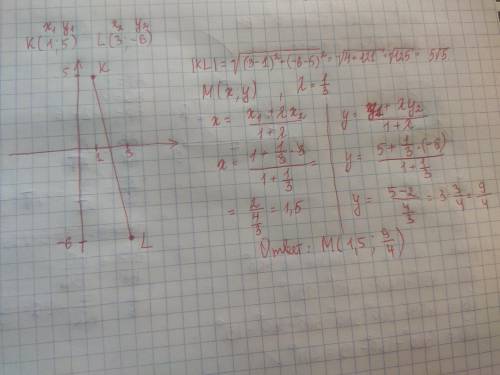 x₁ y₁ x₂ y₂
K(1;5) L(3;-6)
5 K
1 3
-6 L
|KL| = √((3-1)²+(-6-5)²) = √(4+121) = √125 = 5√5
M(x,y), λ = 1/3
x = (x₁ + λx₂)/(1+λ)
x = (1 + 1/3 · 3)/(1 + 1/3) =
= 2/(4/3) = 1,5
y = (y₁ + λy₂)/(1+λ)
y = (5 + 1/3 · (-6))/(1 + 1/3)
y = (5-2)/(4/3) = 3 · 3/4 = 9/4
Ответ: M(1,5; 9/4)